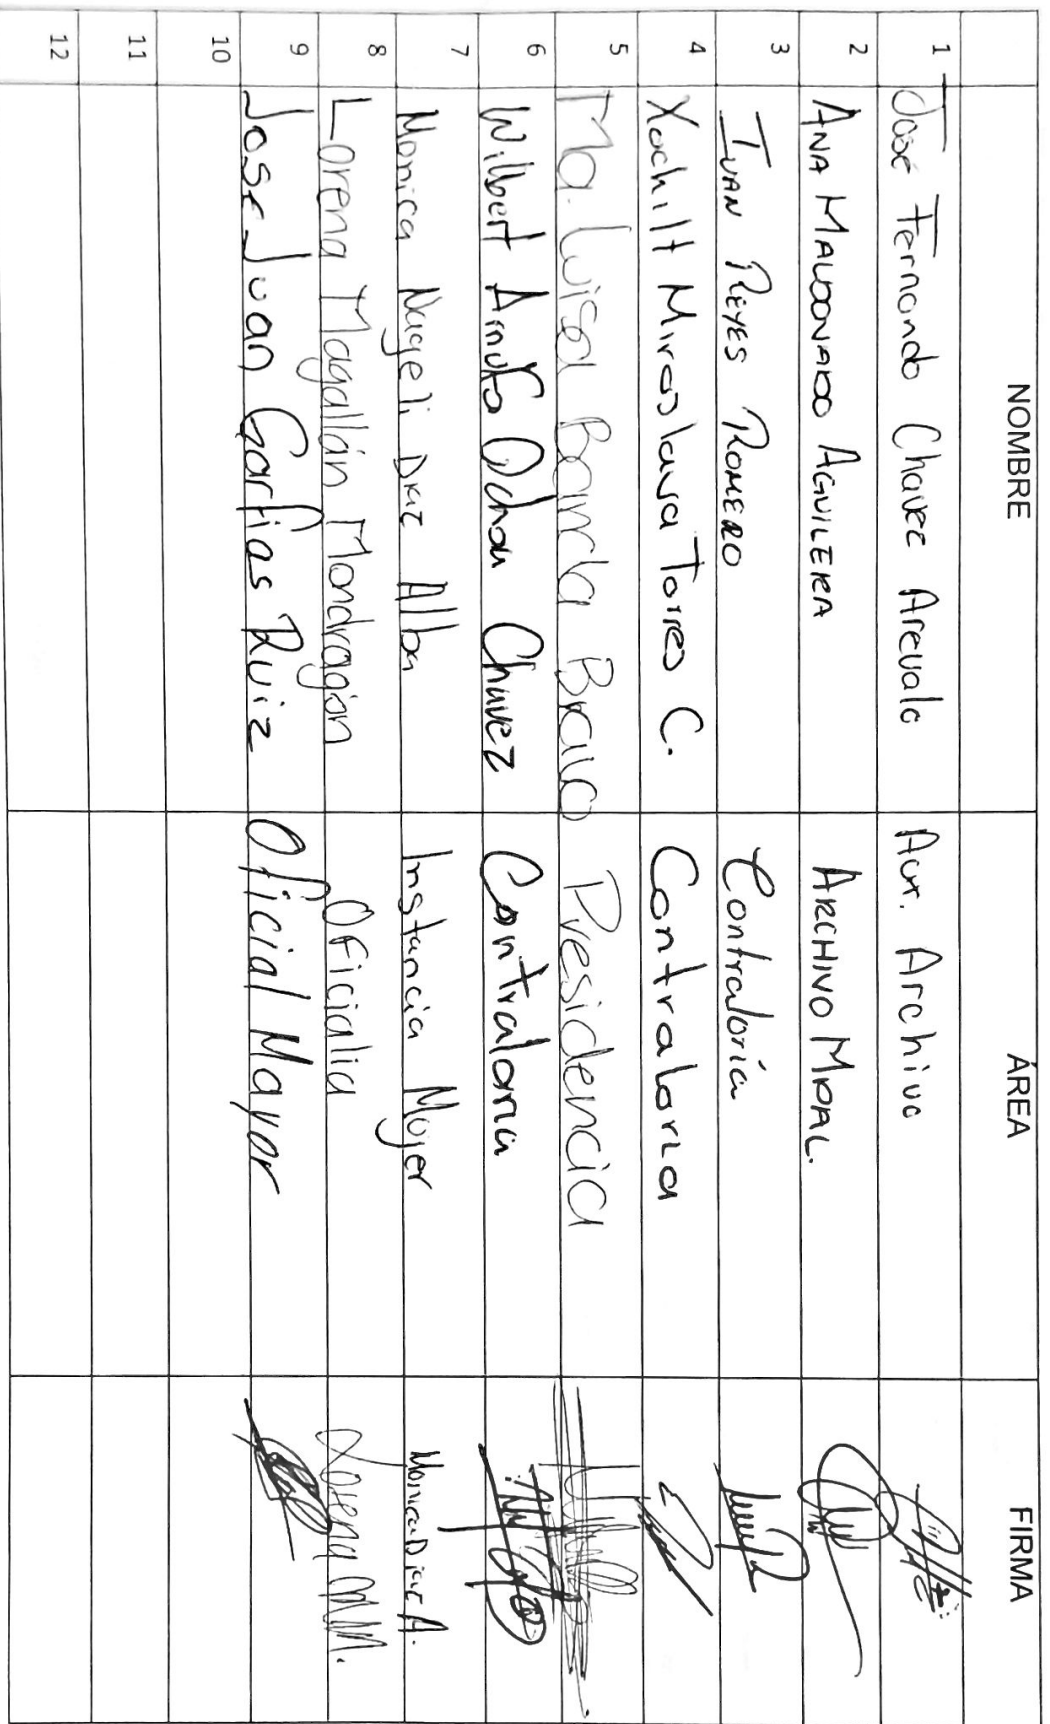 NOMBRE ÁREA FIRMA
1 José Fernando Chavez Arevalo Aux. Archivo
2 ANA MALDONADO AGUILERA ARCHIVO MPAL.
3 IVAN REYES ROMERO Contraloría
4 Xochilt Miroslava Torres C. Contraloria
5 Ma. Luisa Bravo Presidencia
6 Wilbert Ochoa Chavez Contraloria
7 Monica Nayeli Diaz Alba Instancia Mujer Monica Diaz A.
8 Lorena Magallán Mondragón Oficialia Lorena M.M.
9 Jose Juan Garfias Ruiz Oficial Mayor
10
11
12